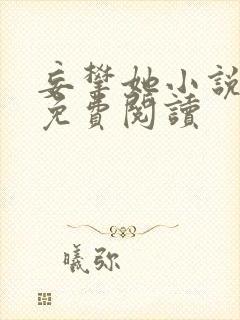 妄攀她小說
免費閱讀
曦弥